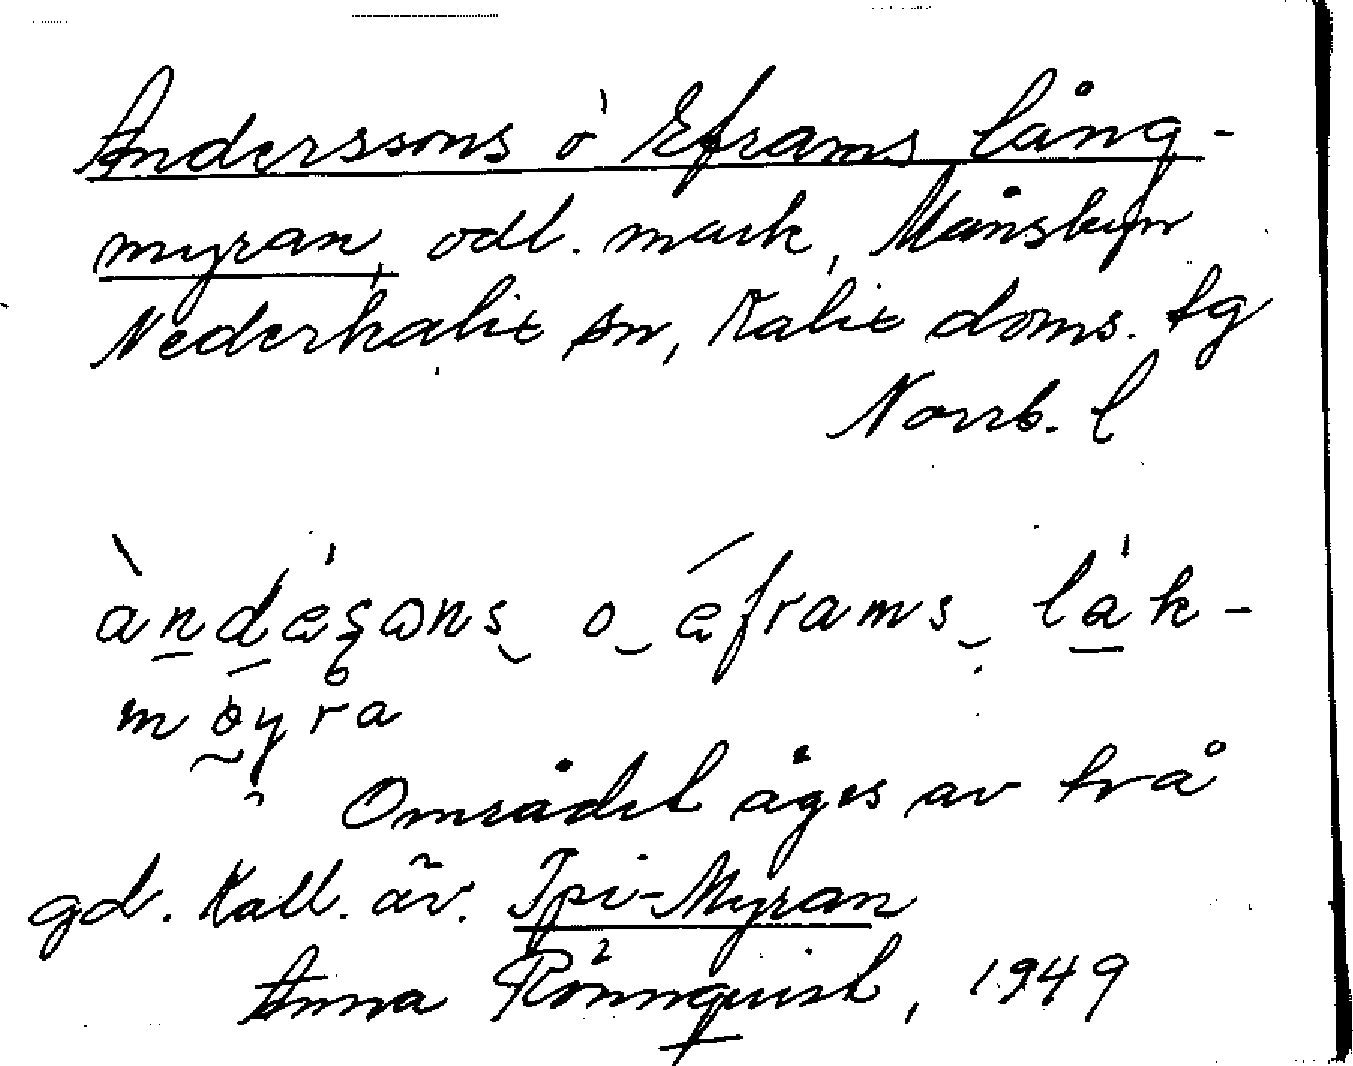 Anderssons o' Eframs lång-
myran, odl. mark, Månsbyn
Nederkalix sn, Kalix doms. tg
Norrb. l
àndéṣɷns o éframs lák-
möyra
Området äges av två
gd. Kall. äv. Ipi-Myran
Anna Rönnquist, 1949